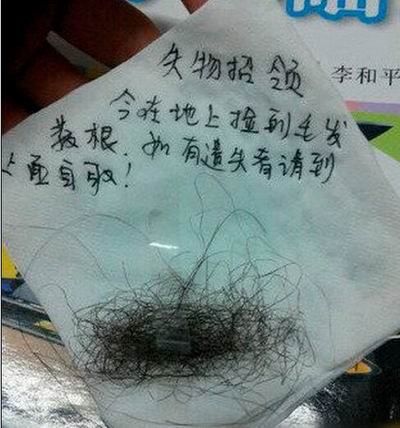 失物招领
今在地上捡到毛发
数根，如有遗失者请到
上面自取！
李和平